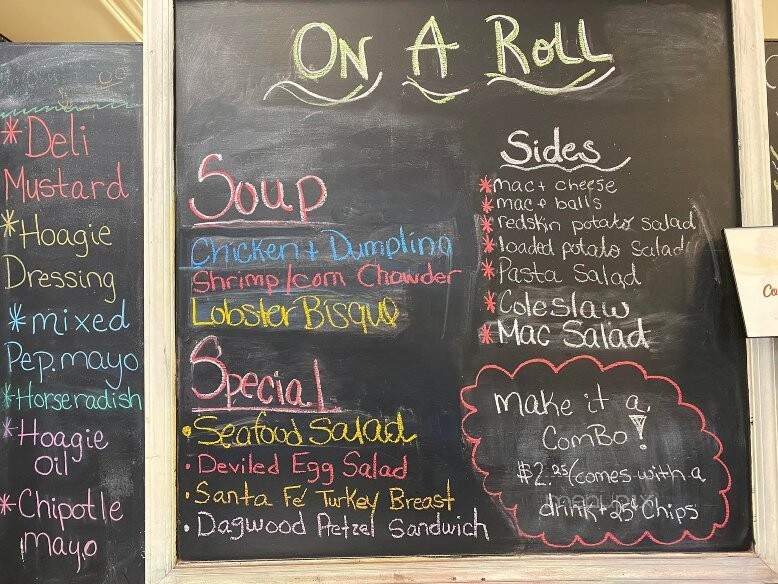 *Deli
Mustard
*Hoagie
Dressing
*mixed
Pep. mayo
*Horseradish
*Hoagie
oil
*Chipotle
mayo
ON A ROLL
Soup
Chicken + Dumpling
Shrimp/corn Chowder
Lobster Bisque
Special
•Seafood Salad
•Deviled Egg Salad
•Santa Fé Turkey Breast
•Dagwood Pretzel Sandwich
Sides
*mac + cheese
*mac + balls
*redskin potato salad
*loaded potato Salad
*Pasta Salad
*Coleslaw
*Mac Salad
make it a
ComBo!
$2.25 (comes with a
drink + 25¢ Chips
menupix
Co